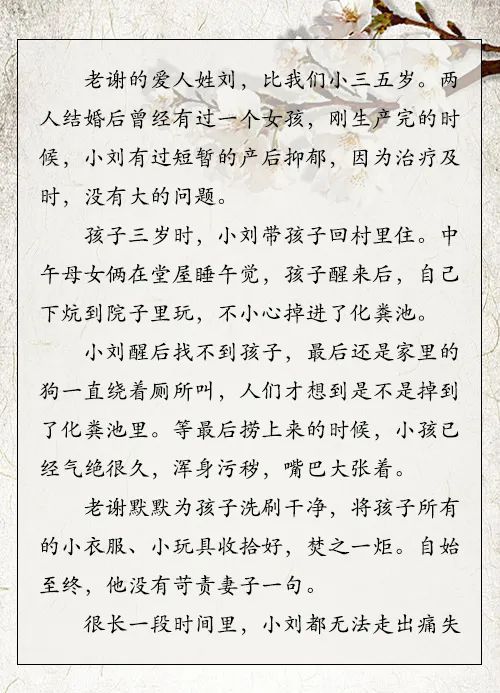 老谢的爱人姓刘，比我们小三五岁。两
人结婚后曾经有过一个女孩，刚生产完的时
候，小刘有过短暂的产后抑郁，因为治疗及
时，没有大的问题。
孩子三岁时，小刘带孩子回村里住。中
午母女俩在堂屋睡午觉，孩子醒来后，自己
下炕到院子里玩，不小心掉进了化粪池。
小刘醒后找不到孩子，最后还是家里的
狗一直绕着厕所叫，人们才想到是不是掉到
了化粪池里。等最后捞上来的时候，小孩已
经气绝很久，浑身污秽，嘴巴大张着。
老谢默默为孩子洗刷干净，将孩子所有
的小衣服、小玩具收拾好，焚之一炬。自始
至终，他没有苛责妻子一句。
很长一段时间里，小刘都无法走出痛失